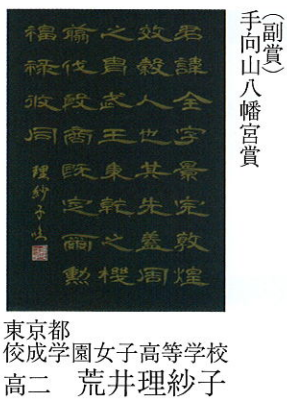 （副賞）
手向山八幡宮賞
君諱全字景完敦煌
效穀人也其先蓋周
之胄武王秉乾之機
翦伐殷商既定爾勲
福祿攸同
理紗子臨
東京都
佼成学園女子高等学校
高二　荒井理紗子